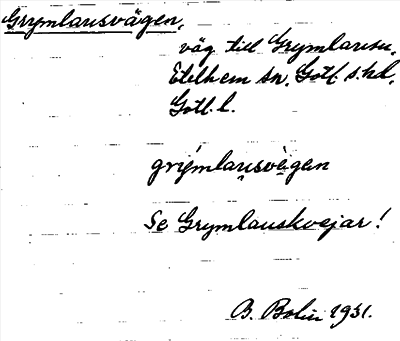 Grymlausvägen,
väg till Grymlausu,
Etelhem sn, Gotl. s. hd,
Gotl. l.
grymlausvègen
Se Grymlauskvejar!
B. Bolin 1931.